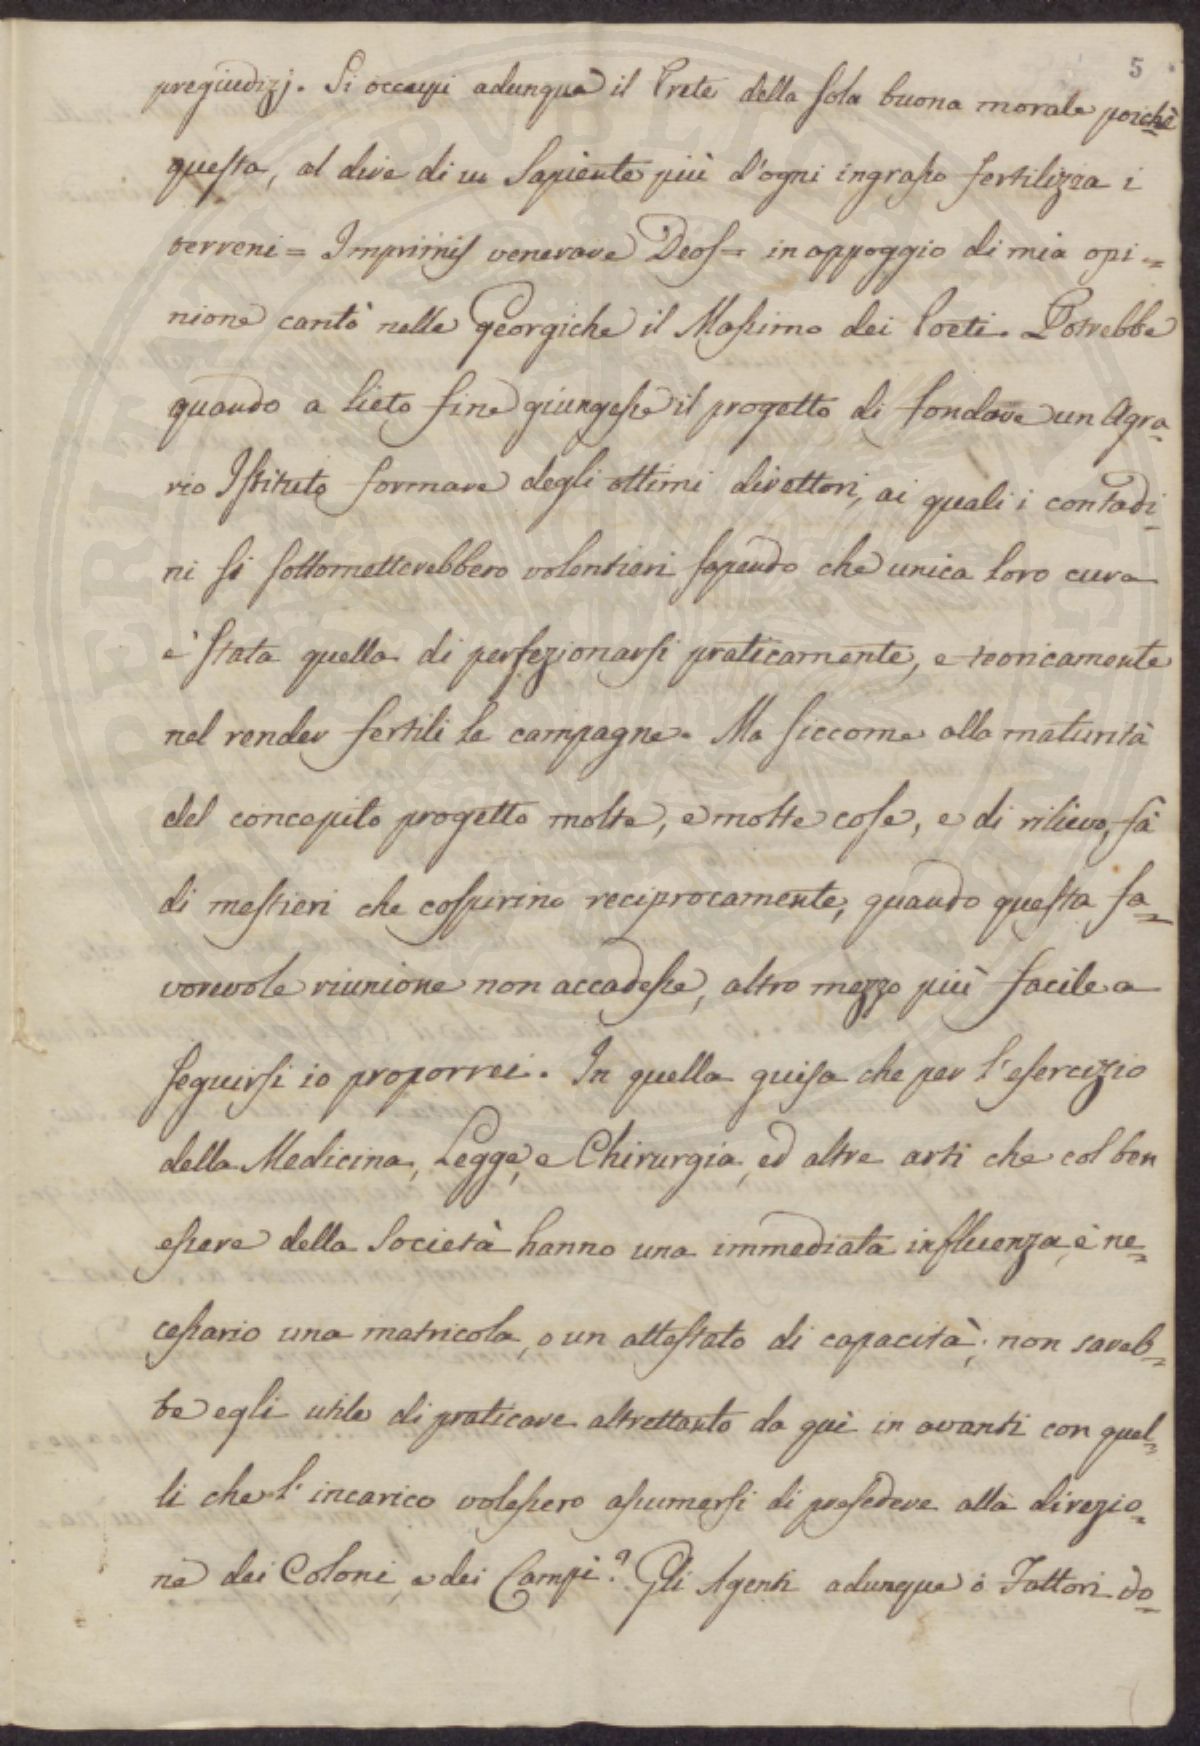 5
pregiudizj. Si occupi adunque il Prete della sola buona morale poichè
questa, al dire di un Sapiente più d'ogni ingrasso fertilizza i
terreni = Imprimis venerare Deos = in appoggio di mia opi=
nione cantò nelle Georgiche il Massimo dei Poeti. Potrebbe
quando a lieto fine giungesse il progetto di fondare un Agra=
rio Istituto formare degli ottimi direttori, ai quali i contadi=
ni si sottometterebbero volontieri sapendo che unica loro cura
è stata quella di perfezionarsi praticamente, e teoricamente
nel render fertili le campagne. Ma siccome alla maturità
del concepito progetto molte, e molte cose, e di rilievo, fà
di mestieri che cospirino reciprocamente, quando questa fa=
vorevole riunione non accadesse, altro mezzo più facile a
seguirsi io proporrei. In quella guisa che per l'esercizio
della Medicina, Legge, e Chirurgia, ed altre arti che col ben
essere della Società hanno una immediata influenza, è ne=
cessario una matricola, o un attestato di capacità; non sareb=
be egli utile di praticare altrettanto da quì in avanti con quel=
li che l'incarico volessero assumersi di presedere alla direzio=
ne dei Coloni, e dei Campi? Gli Agenti adunque o Fattori do=